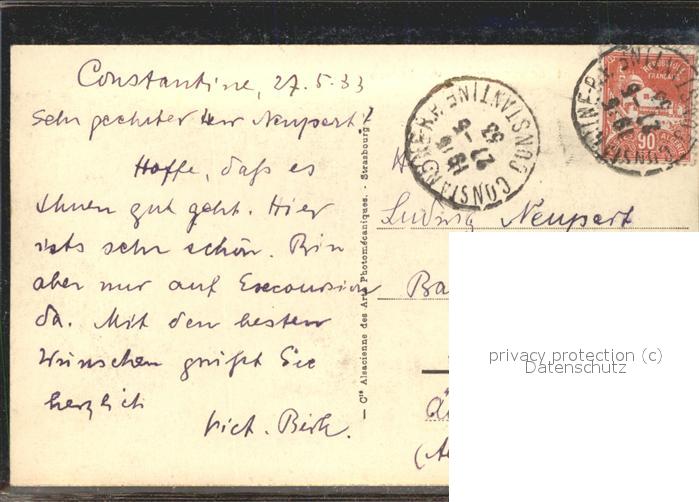 Constantine, 27.5.33
Sehr geehrter Herr Neupert!
Hoffe, daß es
Ihnen gut geht. Hier
ists sehr schön. Bin
aber nur auf Excoursion
da. Mit den besten
Wünschen grüßt Sie
herzlich
Vict. Birk.
— Cie Alsacienne des Arts Photomécaniques. - Strasbourg
CONSTANTINE R.P.
CONSTANTINE
18 15
27 -5
33
REPUBLIQUE
FRANCAISE
90
ALGERIE
CONSTANTINE R.P.
27 -5
33
H
Ludwig Neupert
Ba
(A
privacy protection (c)
Datenschutz